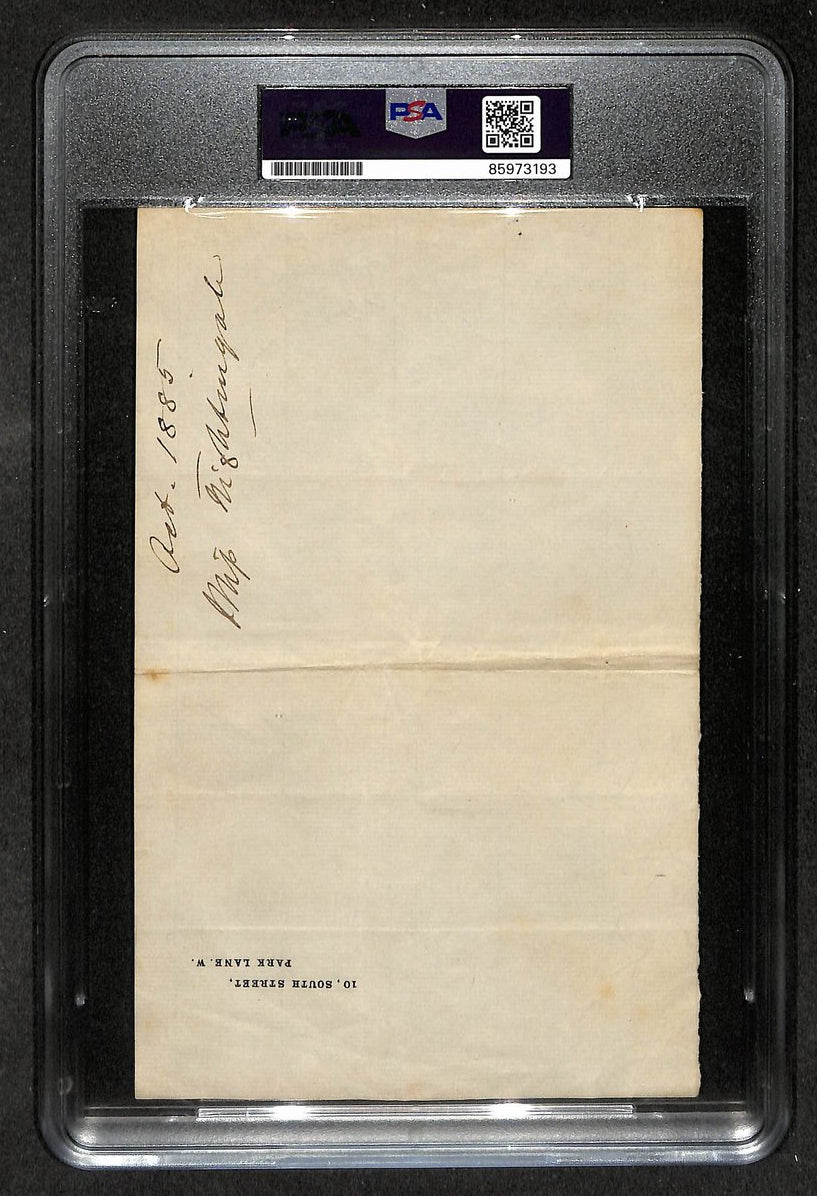 PSA
85973193
Oct. 1885
Miss Nightingale
10, SOUTH STREET,
PARK LANE. W.